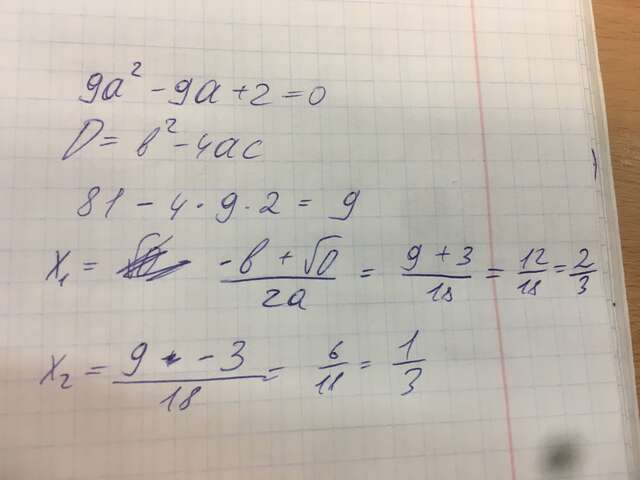 9a² - 9a + 2 = 0
D = b² - 4ac
81 - 4 · 9 · 2 = 9
x₁ = (-b + √D)/2a = (9 + 3)/18 = 12/18 = 2/3
x₂ = (9 - 3)/18 = 6/18 = 1/3